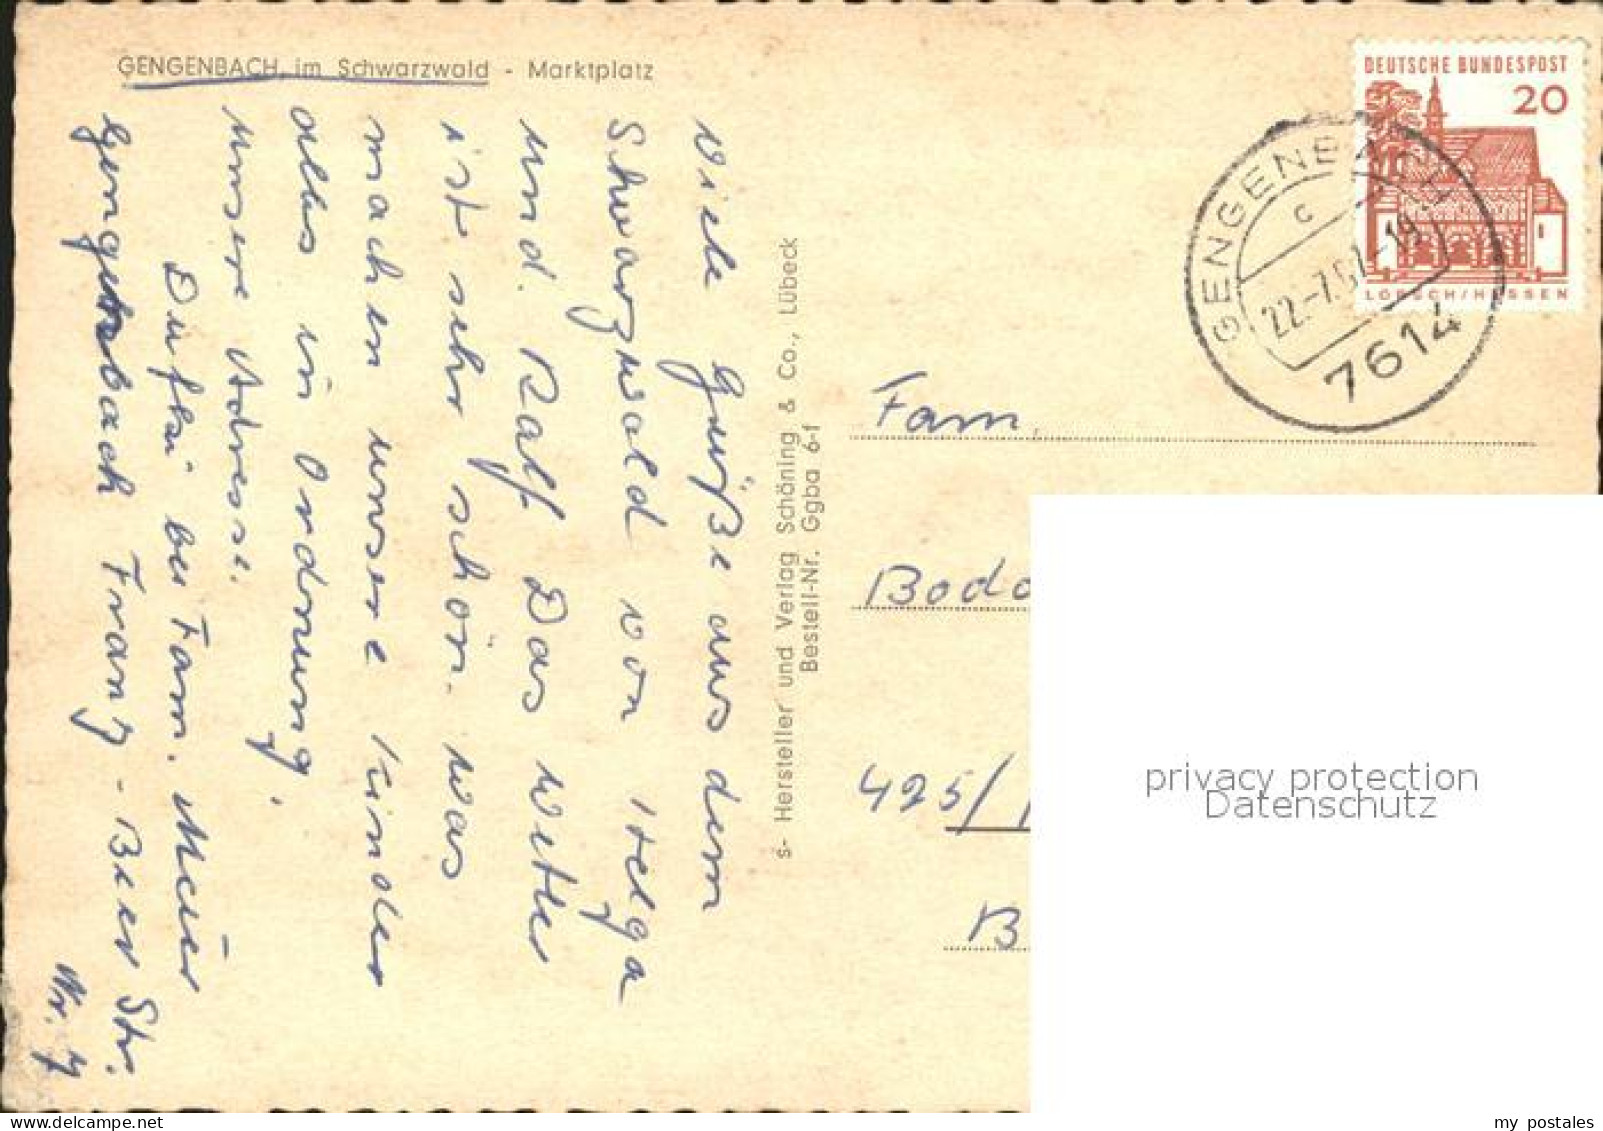 GENGENBACH, im Schwarzwald - Marktplatz
Viele Grüße aus dem
Schwarzwald von Helga
und. Ralf Das Wetter
ist sehr schön. Was
machen unsere Kinder
alles in Ordnung,
unsere Adresse.
bei Fam. Meier
Gengenbach Franz-Beer Str.
Nr. 7
s- Hersteller und Verlag Schöning & Co., Lübeck
Bestell-Nr. Ggba 6-f
DEUTSCHE BUNDESPOST
20
LORSCH/HESSEN
GENGENBACH
c
22.-7.67-19
7614
Fam.
Bodo
425/
B
privacy protection
Datenschutz
my postales